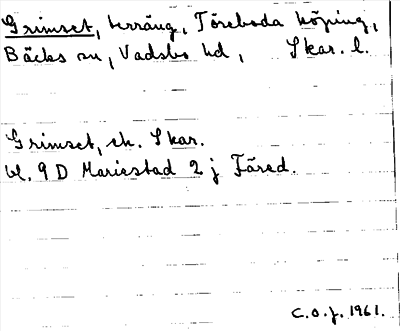 Grimset, terräng, Töreboda köping,
Bäcks sn, Vadsbo hd, Skar. l.
Grimset, ek. Skar.
bl. 9 D Mariestad 2 j Färed.
C.O.J. 1961.